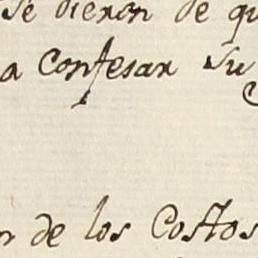 se dieron de qu
a Confesar su
n de los Costos